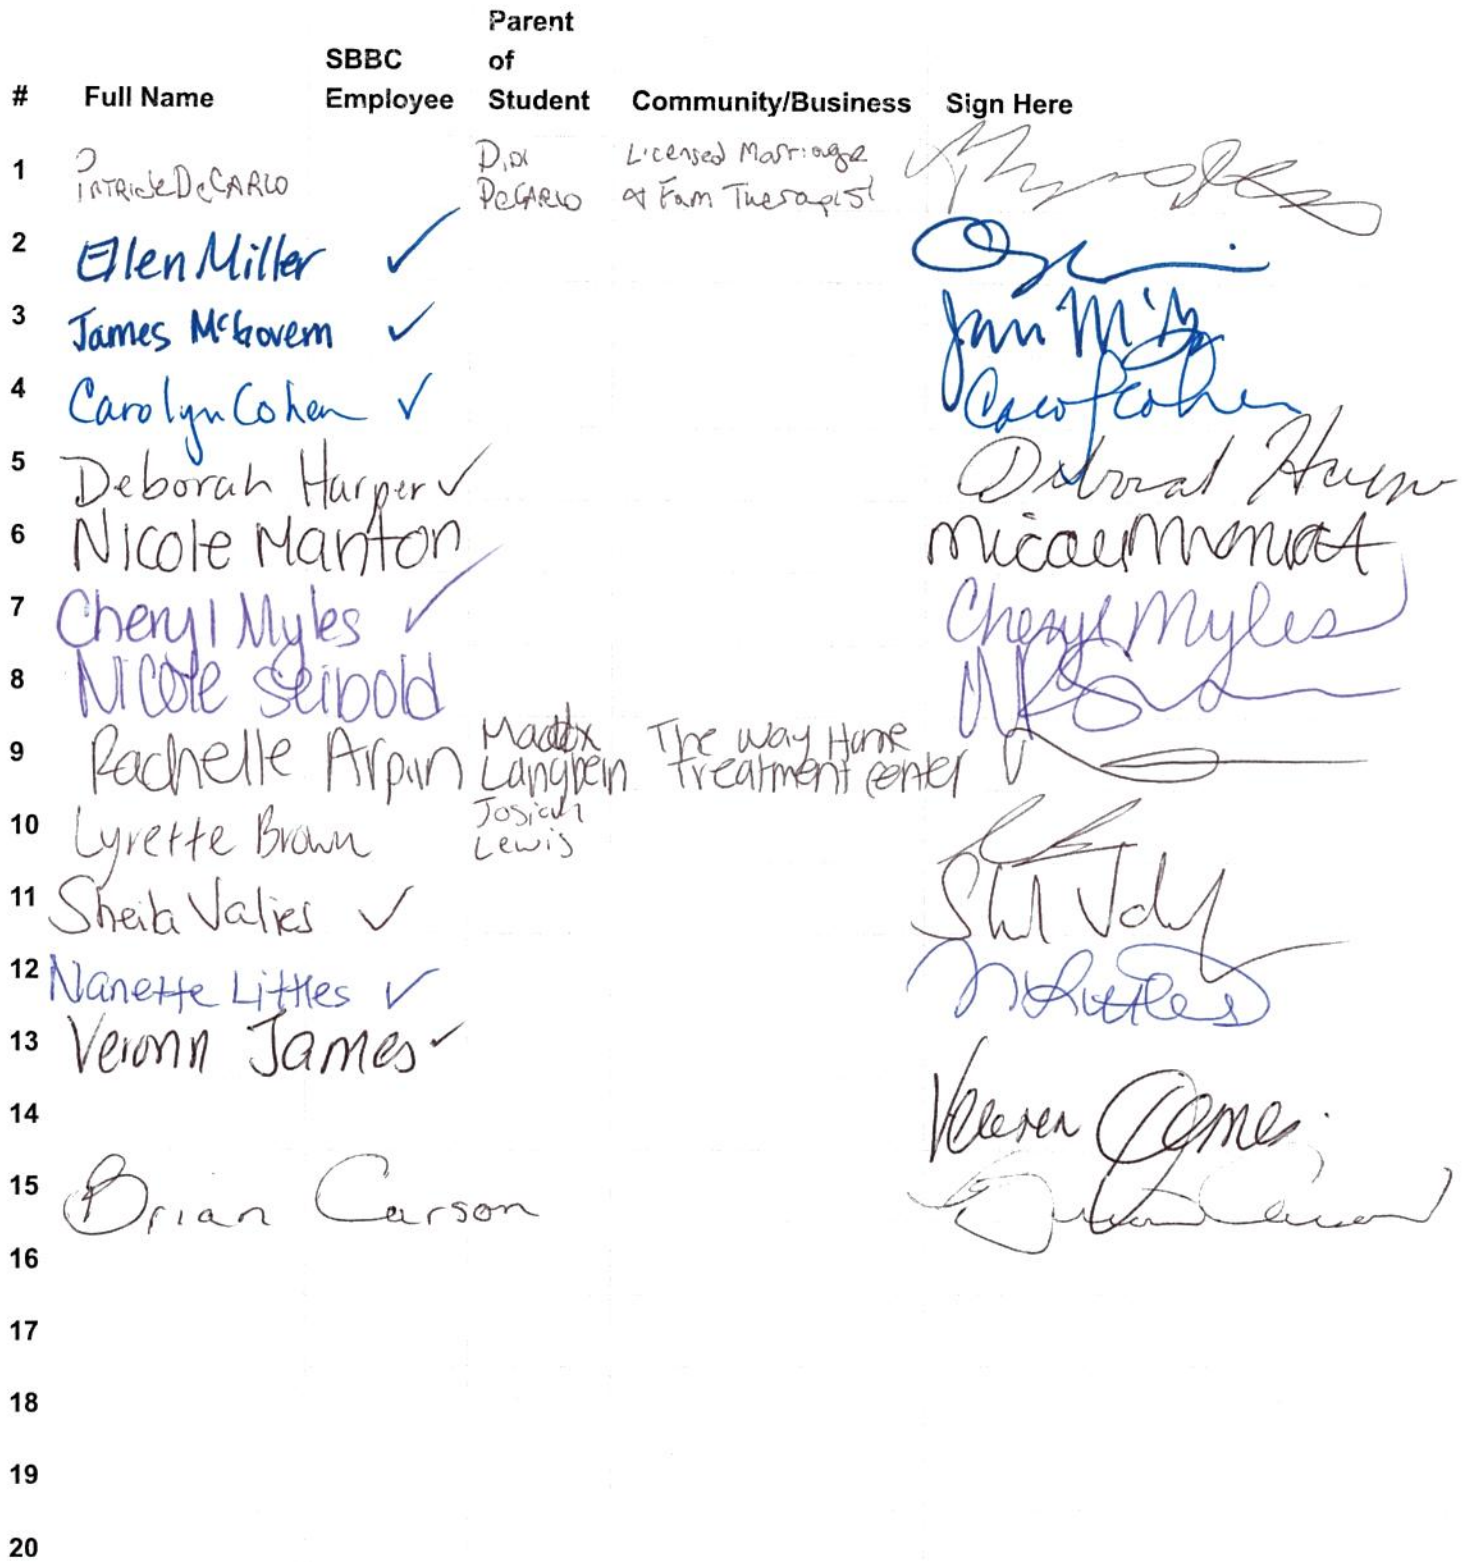 Parent
SBBC of
# Full Name Employee Student Community/Business Sign Here
1 Patrice DeCarlo Didi DeCarlo Licensed Marriage & Fam Therapist
2 Ellen Miller ✓
3 James McGovern ✓
4 Carolyn Cohen ✓ Cohen
5 Deborah Harper ✓ Deborah Harper
6 Nicole Manton
7 Cheryl Myles ✓ Cheryl Myles
8 Nicole Seibold
9 Rachelle Arpin Maddox Langbein The Way Home Treatment Center
10 Lyrette Brown Josiah Lewis
11 Sheila Valies ✓
12 Nanette Littles ✓ N Littles
13 Veronn James ✓
14 James
15 Brian Carson
16
17
18
19
20